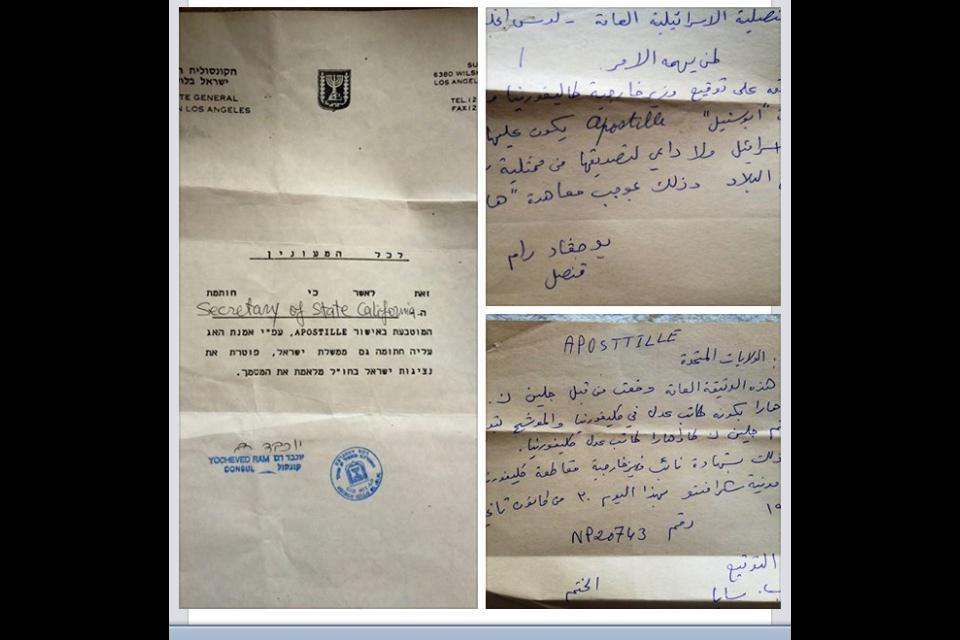 הקונסוליה
ישראל בלוס
TE GENERAL
LOS ANGELES
SU
6380 WILSH
LOS ANGEL
TEL.(2
FAX(2
לכל המעונין
זאת לאשר כי חותמת
ה. Secretary of State California
המוטבעת באישור APOSTILLE, עפ"י אמנת האג
עליה חתומה גם ממשלת ישראל, פוטרת את
נציגות ישראל בחו"ל מלאמת את המסמך.
יוכבד רם
YOCHEVED RAM יוכבד רם
CONSUL קונסול
الاسرائيلية العامة - لوس
لمن يهمه الامر
على توقيع وزير خارجية كاليفورنيا
Apostille يكون عليها
ولا داعي لتصديقها من ممثلية
البلاد وذلك بموجب معاهدة "ها
يوخفاد رام
قنصل
APOSTTILLE
الولايات المتحدة
هذه الوثيقة العامة وقعت من قبل جلين ك.
هارا بكونه كاتب عدل في كليفورنيا والموشح
جلين ك كازهارا كاتب عدل كليفورنيا.
بشهادة نائب وزير خارجية مقاطعة كليفورن
بهذا اليوم ٣٠ من كانون ثان
١٩
رقم NP20743
التوقيع
الختم